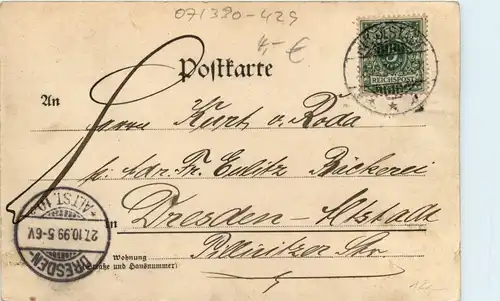 071390-429
4,- €
Postkarte
REICHSPOST
An
Herrn Kurt v. Roda
p. Adr. Fr. Eulitz Bäckerei
in Dresden-Altstadt
Pillnitzer Str.
Wohnung
(Straße und Hausnummer)
DRESDEN-ALTST. 10
27.10.99.5-6V.